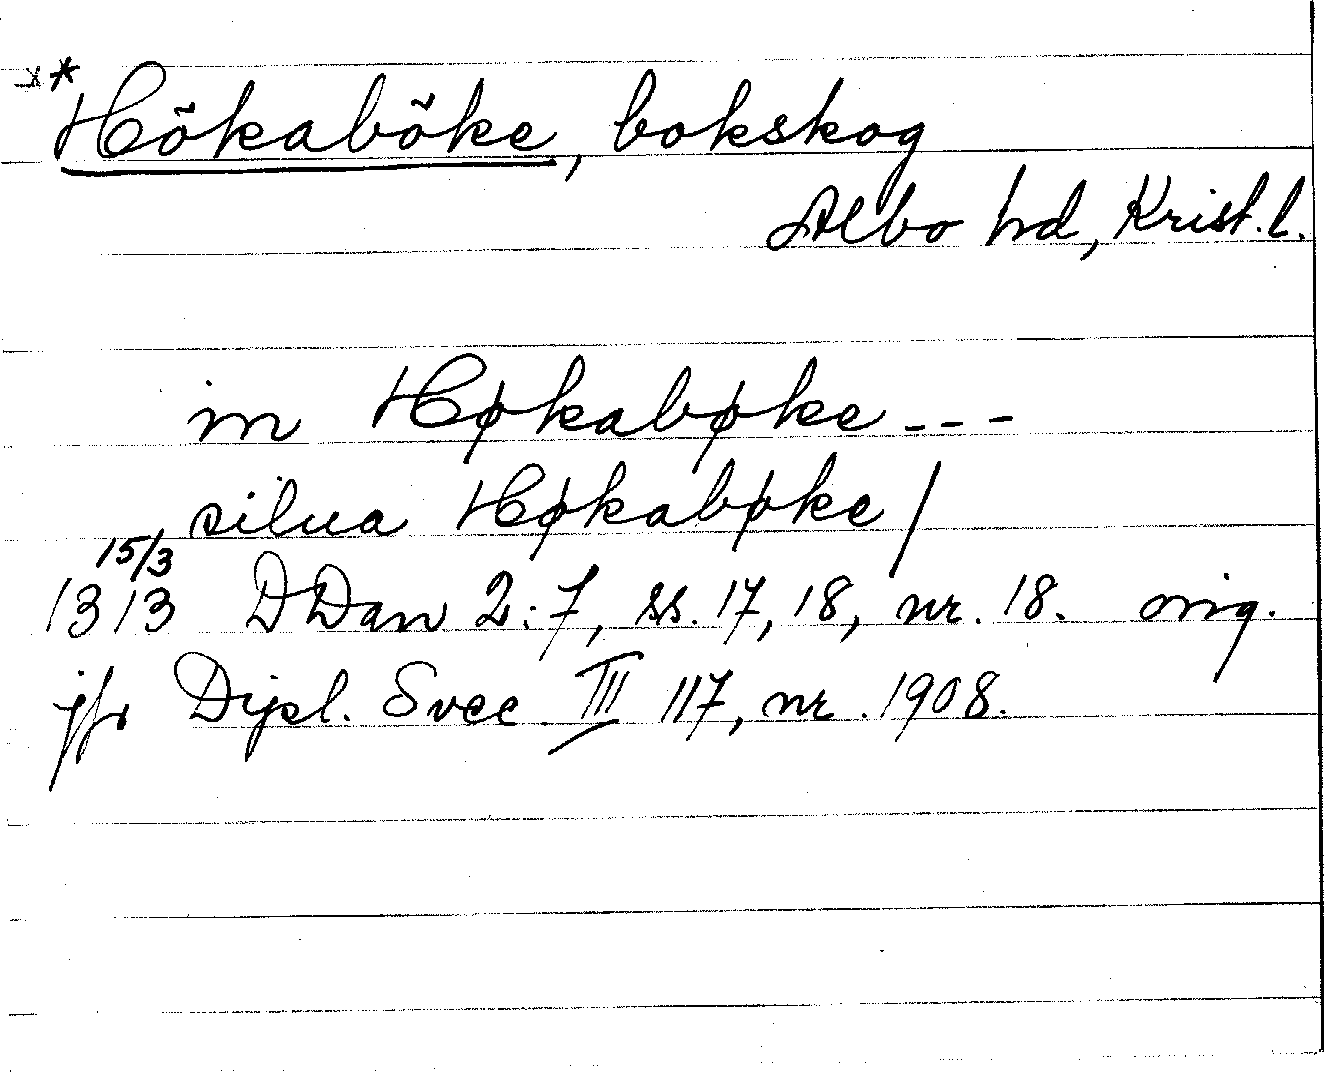 * Hökaböke, bokskog
Albo hd, Krist. l.
in Høkabøke ---
silua Høkabøke/
15/3
1313 DDan 2:7, ss. 17, 18, nr. 18. orig.
jfr Dipl. Svec. III 117, nr. 1908.